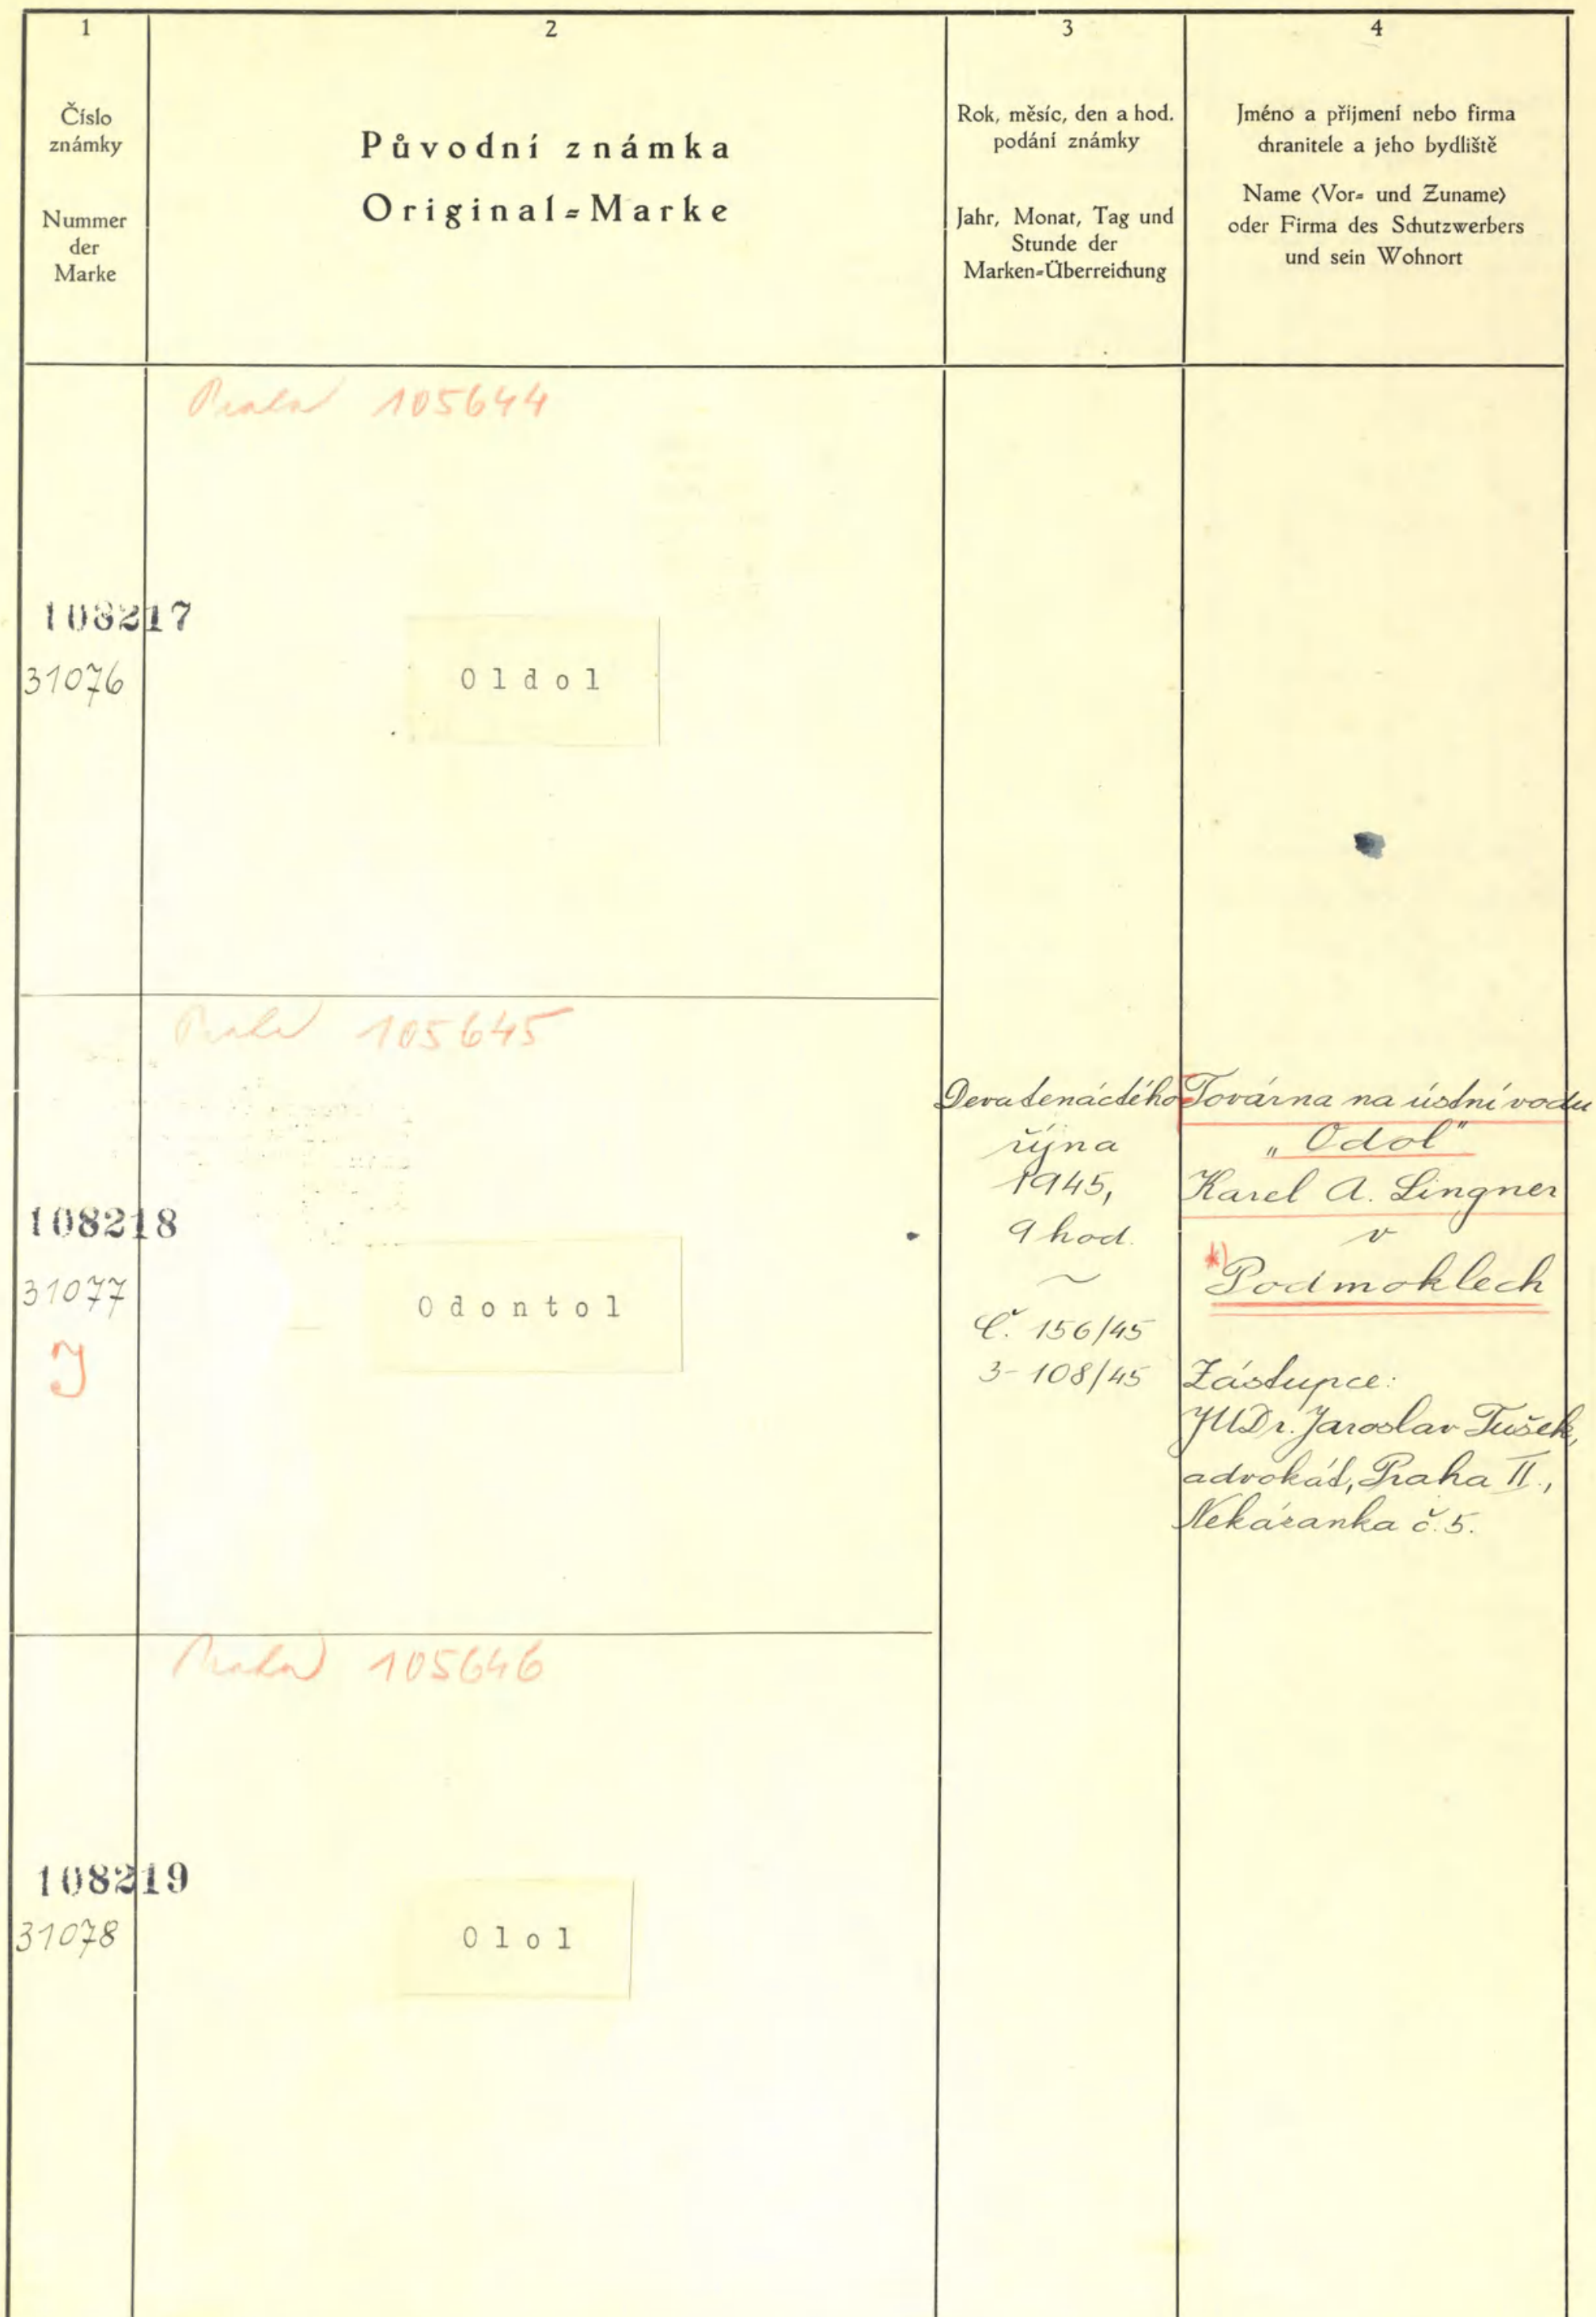 1
Číslo
známky
Nummer
der
Marke
2
Původní známka
Original-Marke
3
Rok, měsíc, den a hod.
podání známky
Jahr, Monat, Tag und
Stunde der
Marken-Überreichung
4
Jméno a přijmení nebo firma
chranitele a jeho bydliště
Name (Vor- und Zuname)
oder Firma des Schutzwerbers
und sein Wohnort
105644
108217
31076
Oldol
105645
108218
31077
J
Odontol
Devatenáctého
října
1945,
9 hod.
Č. 156/45
3-108/45
Továrna na ústní vodu
„Odol"
Karel A. Lingner
v
*) Podmoklech
Zástupce:
JUDr. Jaroslav Tušek,
advokát, Praha II.,
Nekázanka č. 5.
105646
108219
31078
Olol